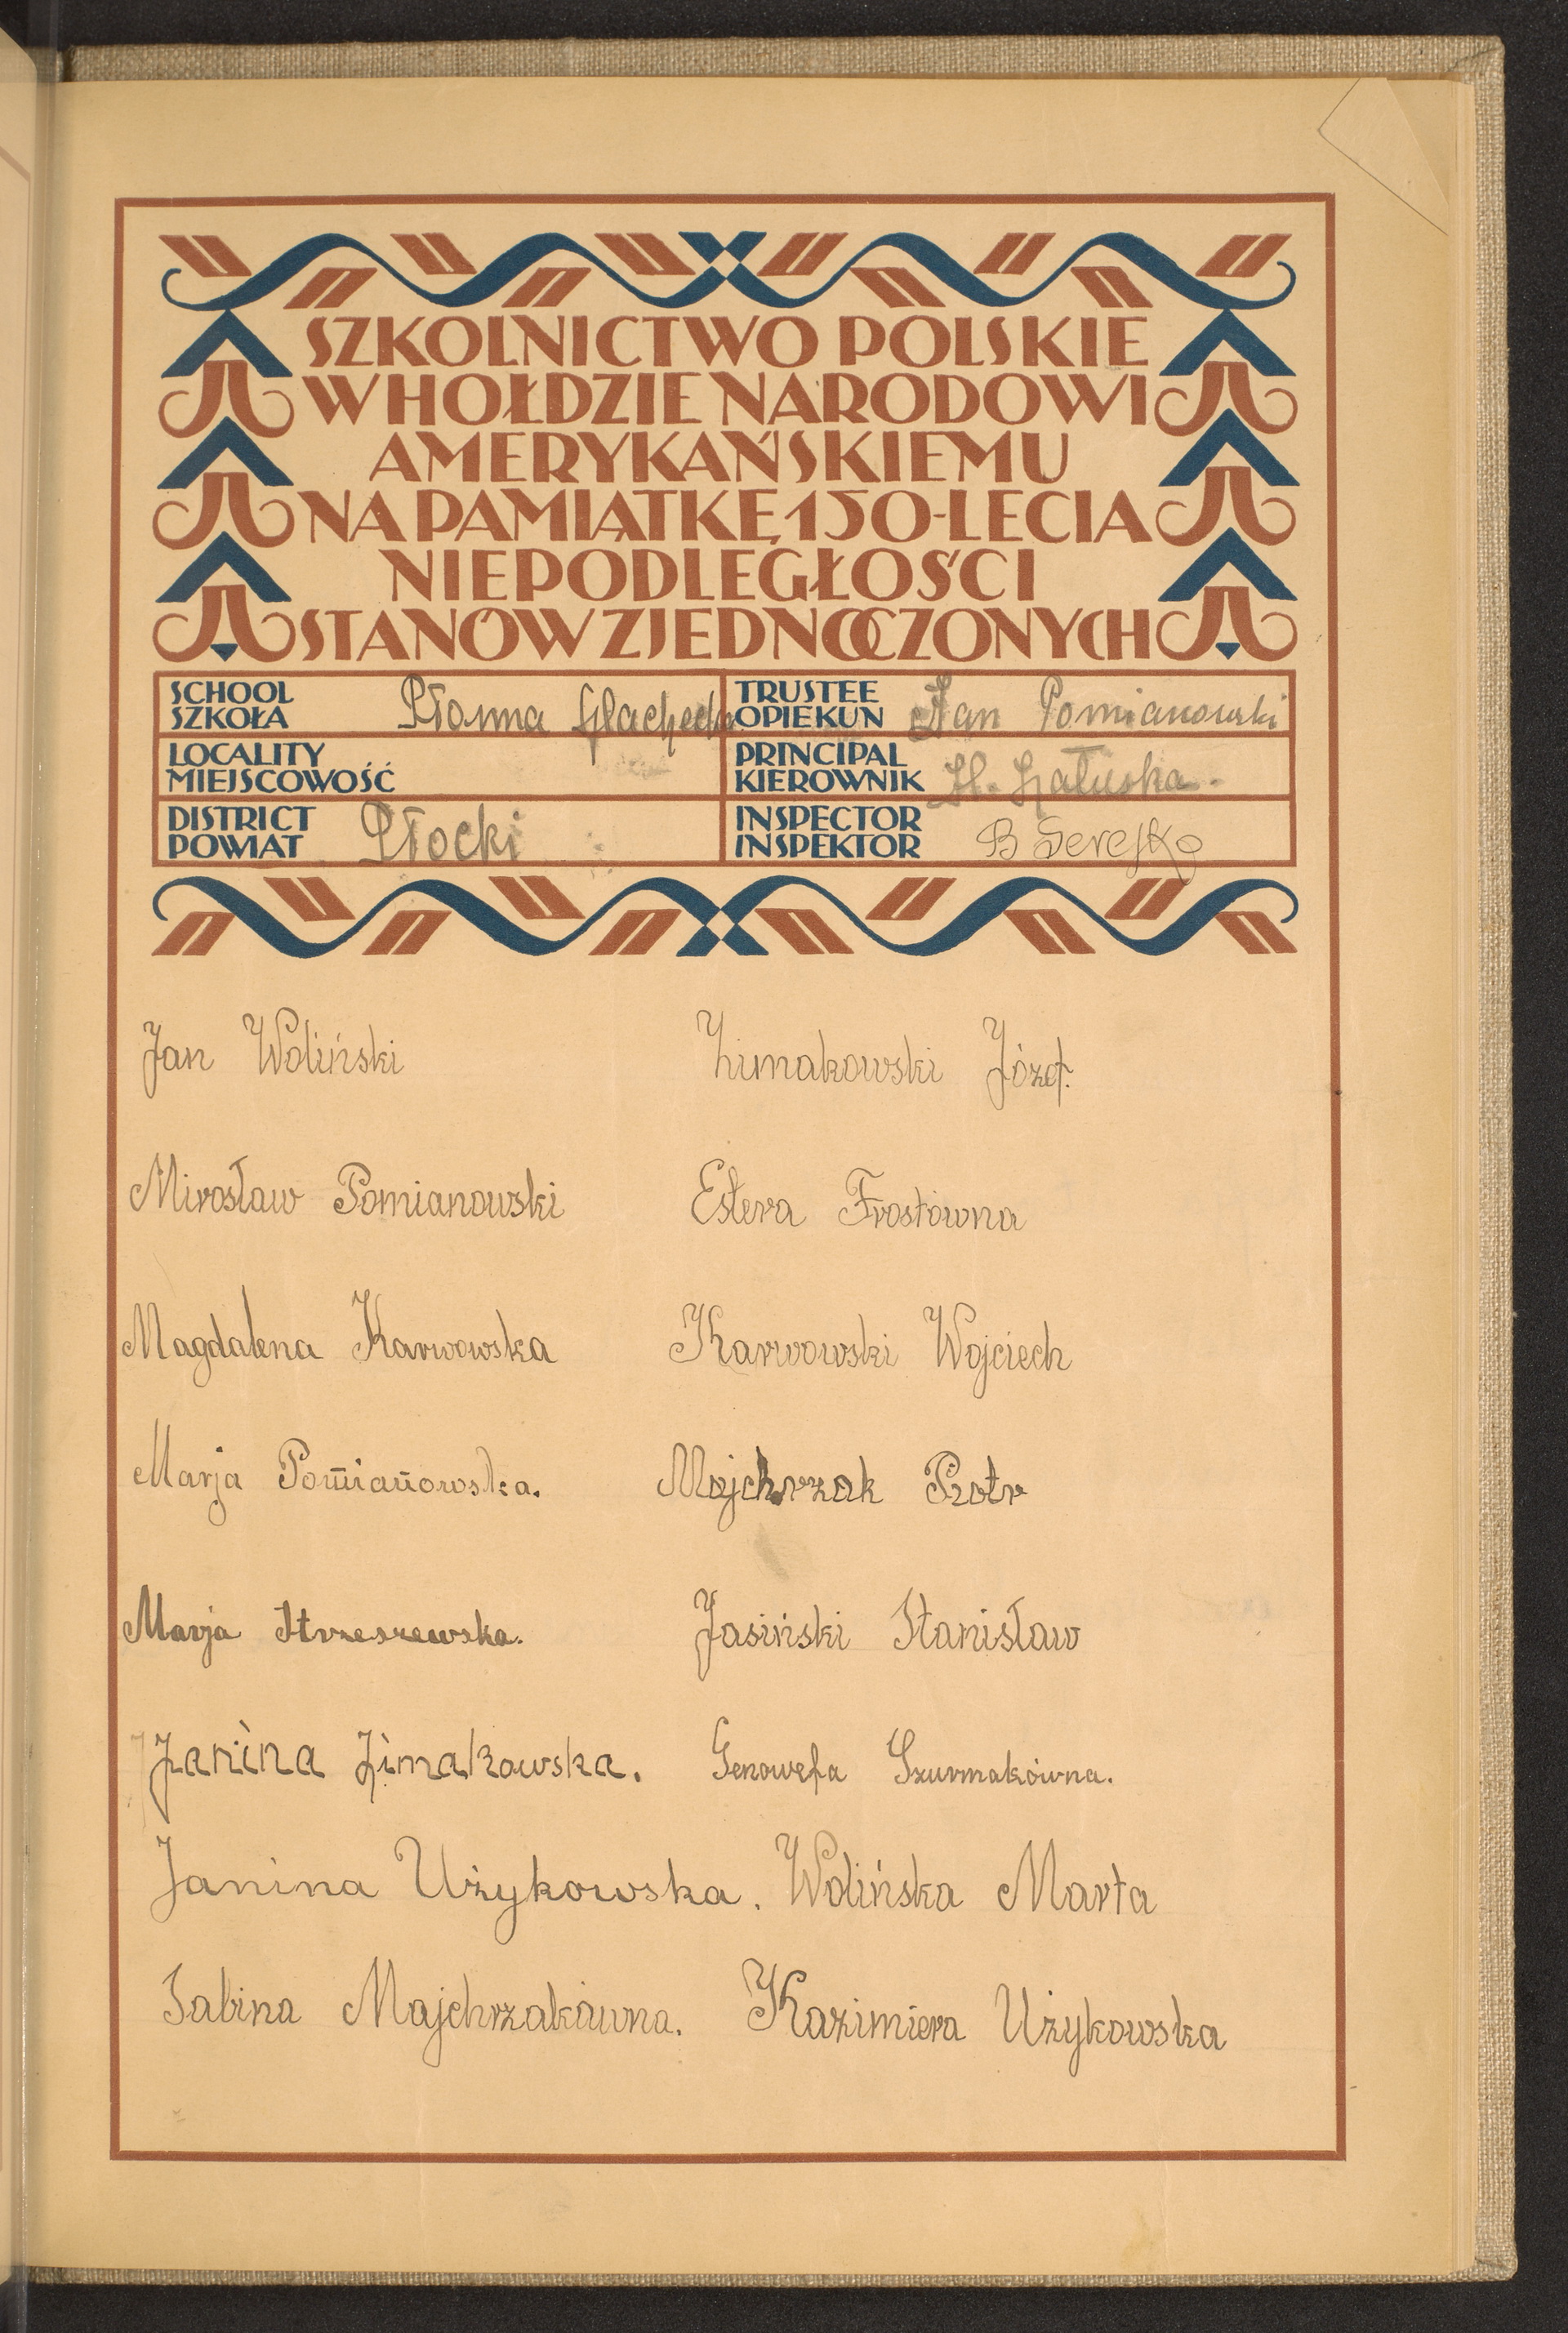 SZKOLNICTWO POLSKIE
W HOŁDZIE NARODOWI
AMERYKAŃSKIEMU
NA PAMIĄTKĘ 150-LECIA
NIEPODLEGŁOŚCI
STANÓW ZJEDNOCZONYCH
SCHOOL
SZKOŁA Płonna Szlachecka
TRUSTEE
OPIEKUN Jan Pomianowski
LOCALITY
MIEJSCOWOŚĆ
PRINCIPAL
KIEROWNIK H. Załuska.
DISTRICT
POWIAT Płocki
INSPECTOR
INSPEKTOR B Serejko
Jan Woliński
Zimakowski Józef.
Mirosław Pomianowski
Estera Frostówna
Magdalena Karwowska
Karwowski Wojciech
Marja Pomianowska.
Majchrzak Piotr
Marja Strzeszewska.
Jasiński Stanisław
Janina Zimakowska.
Genowefa Szurmakówna.
Janina Użykowska.
Wolińska Marta
Sabina Majchrzakówna.
Kazimiera Użykowska